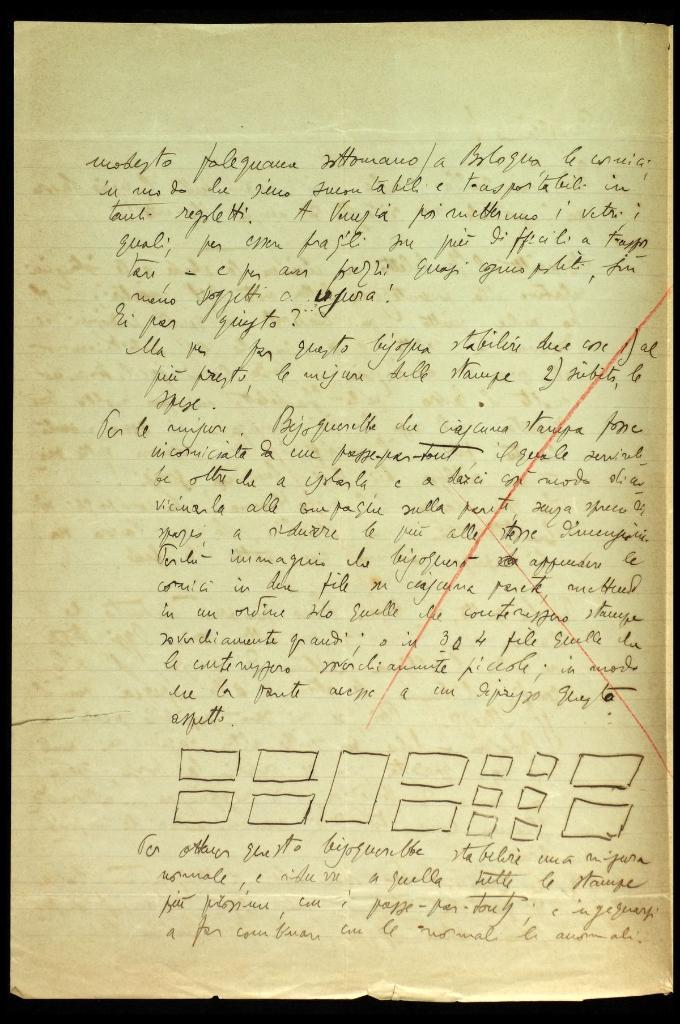 modesto falegname sottomano) a Bologna le cornici;
in modo che sieno smontabili e trasportabili in
tanti regoletti. A Venezia poi metteremo i vetri i
quali, per essere fragili son più difficili a traspor
tare - e per aver prezzi quasi cosmopoliti, sin
meno soggetti a usura!
Ti par giusto?
Ma per far questo bisogna stabilire due cose 1) al
più presto, le misure delle stampe 2) subito, le
spese.
Per le misure. Bisognerebbe che ciascuna stampa fosse
incorniciata da un passe-par-tout il quale servireb
be oltre che a isolarla e a darci così modo di av
vicinarla alle compagne sulla parete, senza spreco di
spazio, a ridurre le più alle stesse dimensioni.
Perché immagino che bisognerà appendere le
cornici in due file su ciascuna parete mettendo
in un ordine solo quelle che contenessero stampe
soverchiamente grandi; o in 3 o 4 file quelle che
le contenessero soverchiamente piccole; in modo
che la parete avesse a un dipresso questo
aspetto.
Per ottener questo bisognerebbe stabilire una misura
normale, e ridurre a quella tutte le stampe
più prossime, con i passe-par-touts; e ingegnarsi
a far combinare con le normali le anormali.